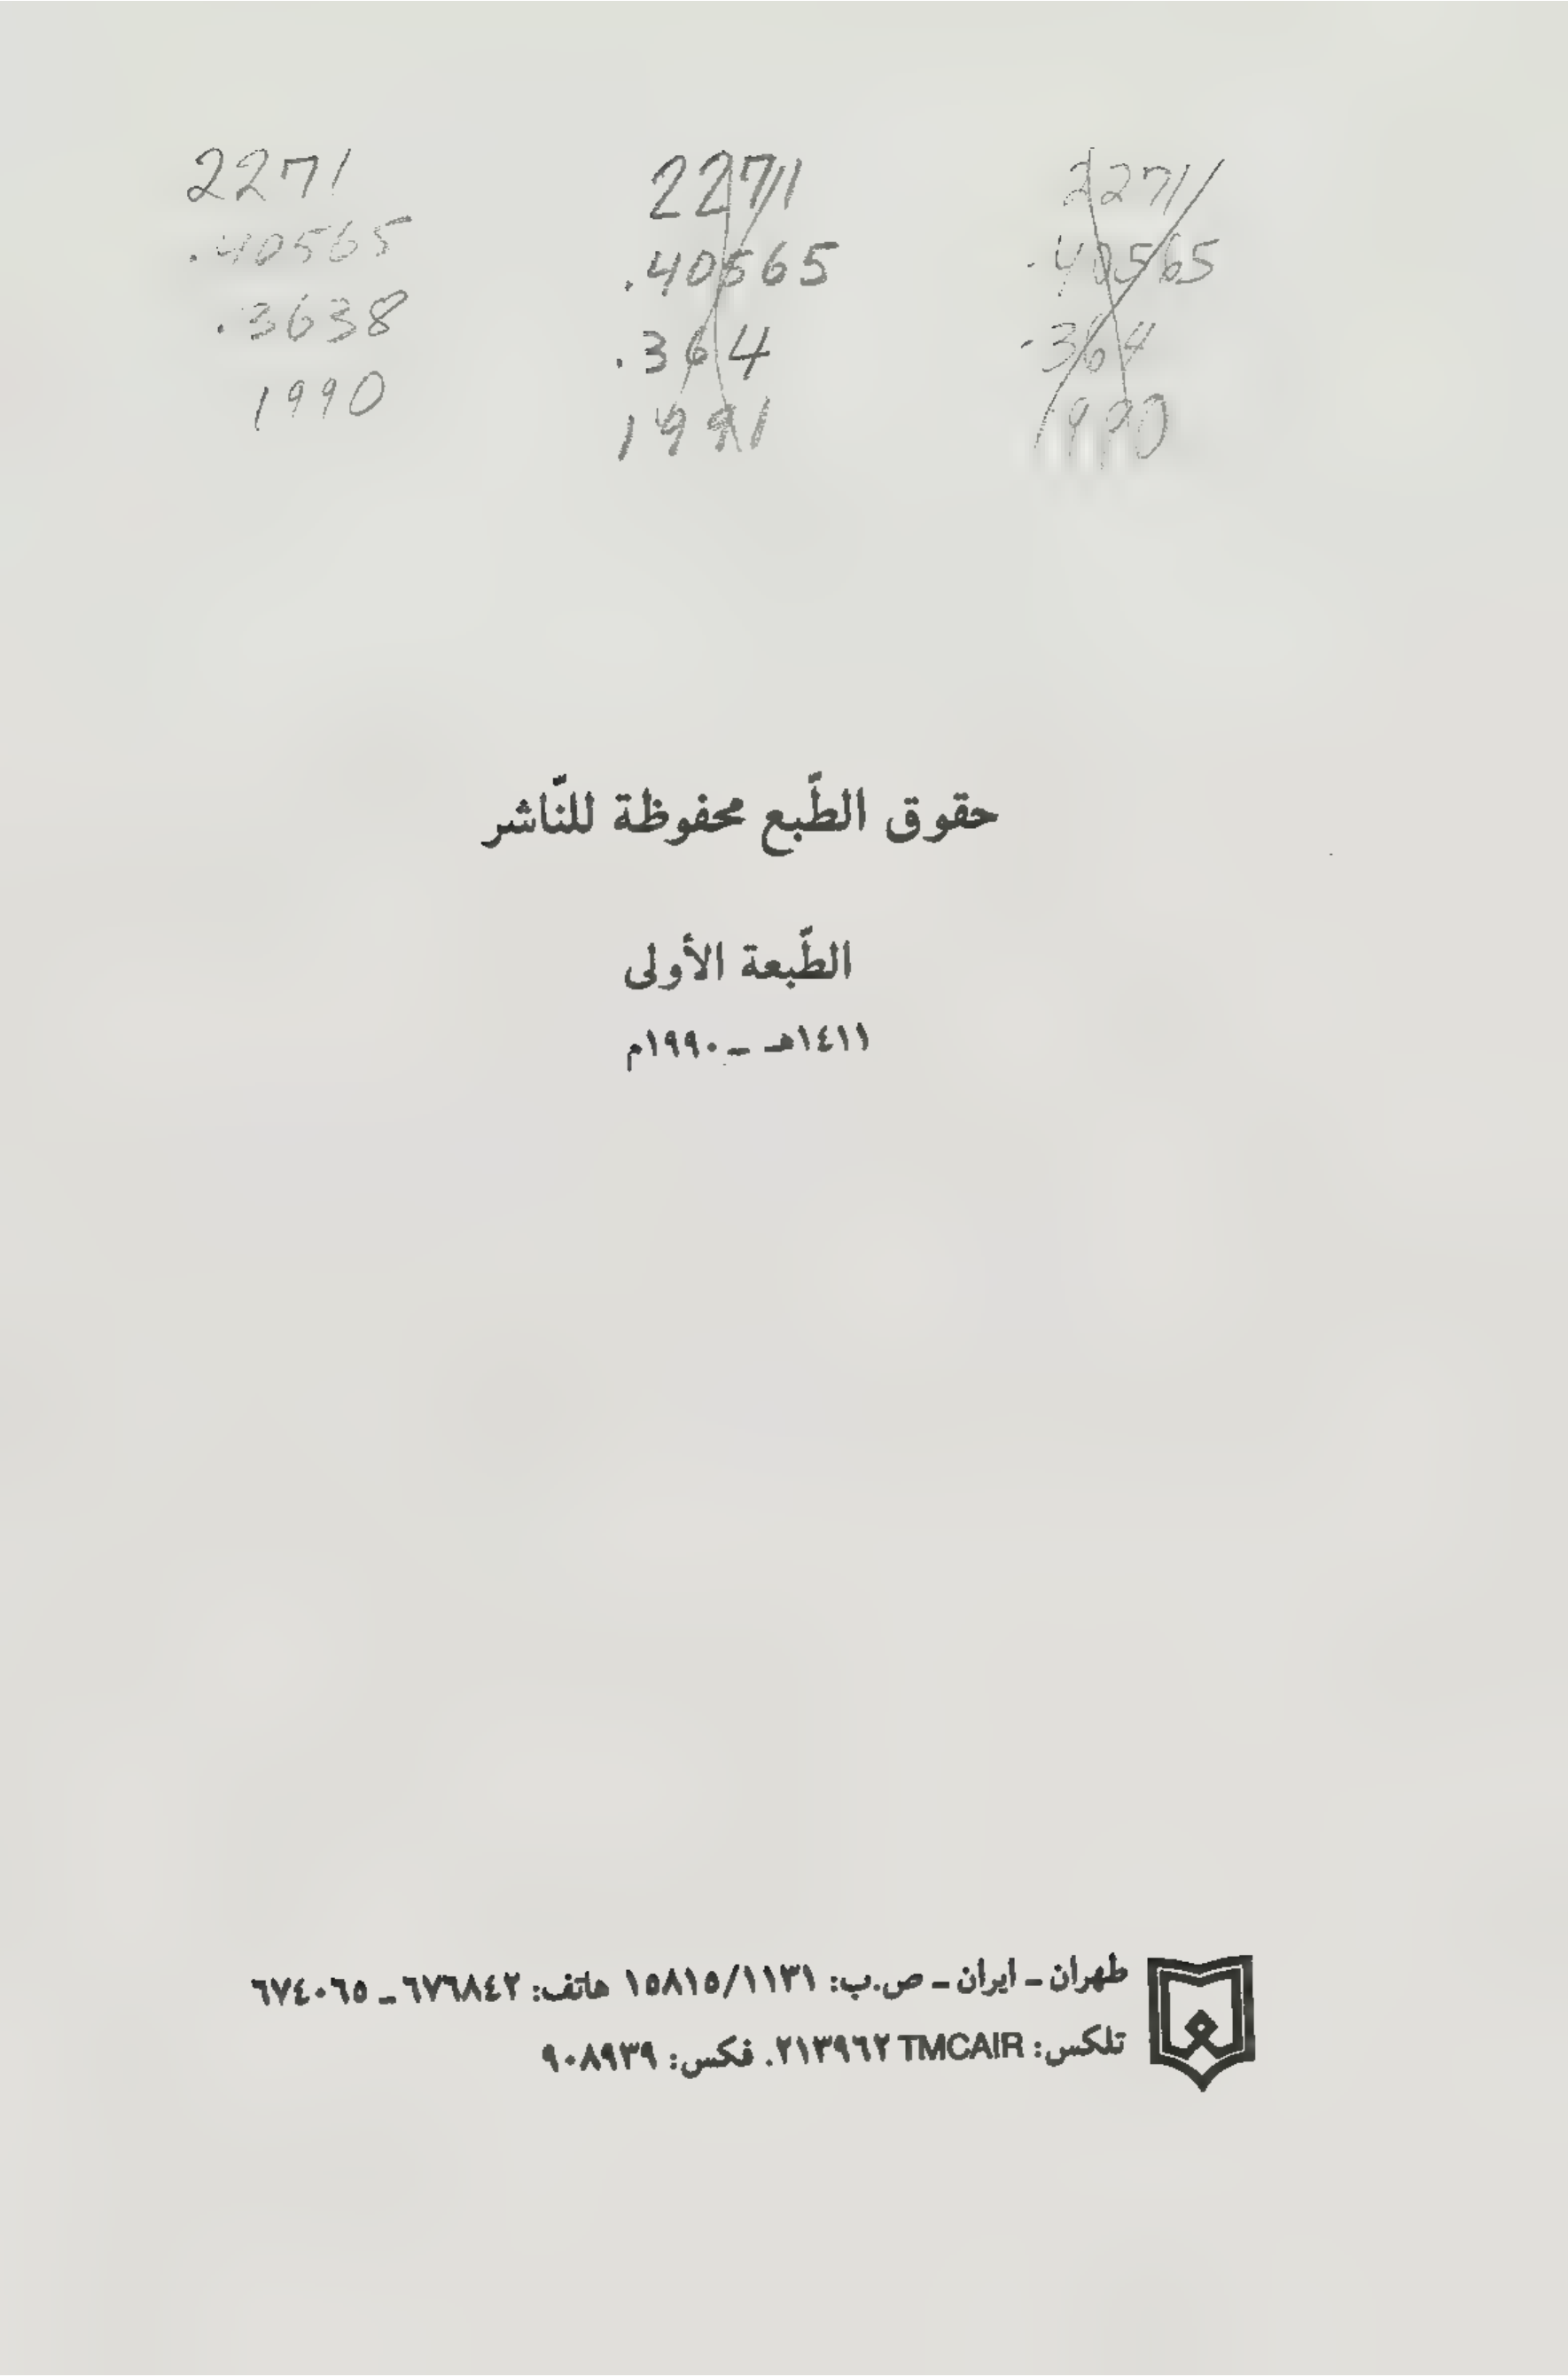 2271
.40565
.3638
1990
2271
.40565
.364
1991
2271
.40565
.364
1990
حقوق الطّبع محفوظة للنّاشر
الطّبعة الأولى
١٤١١هـ ــ ١٩٩٠م
طهران ـ ايران ـ ص.ب: ١٥٨١٥/١١٣١ هاتف: ٦٧٦٨٤٢ ـ ٦٧٤٠٦٥
تلكس: TMCAIR ٢١٣٩٦٢. فكس: ٩٠٨٩٣٩